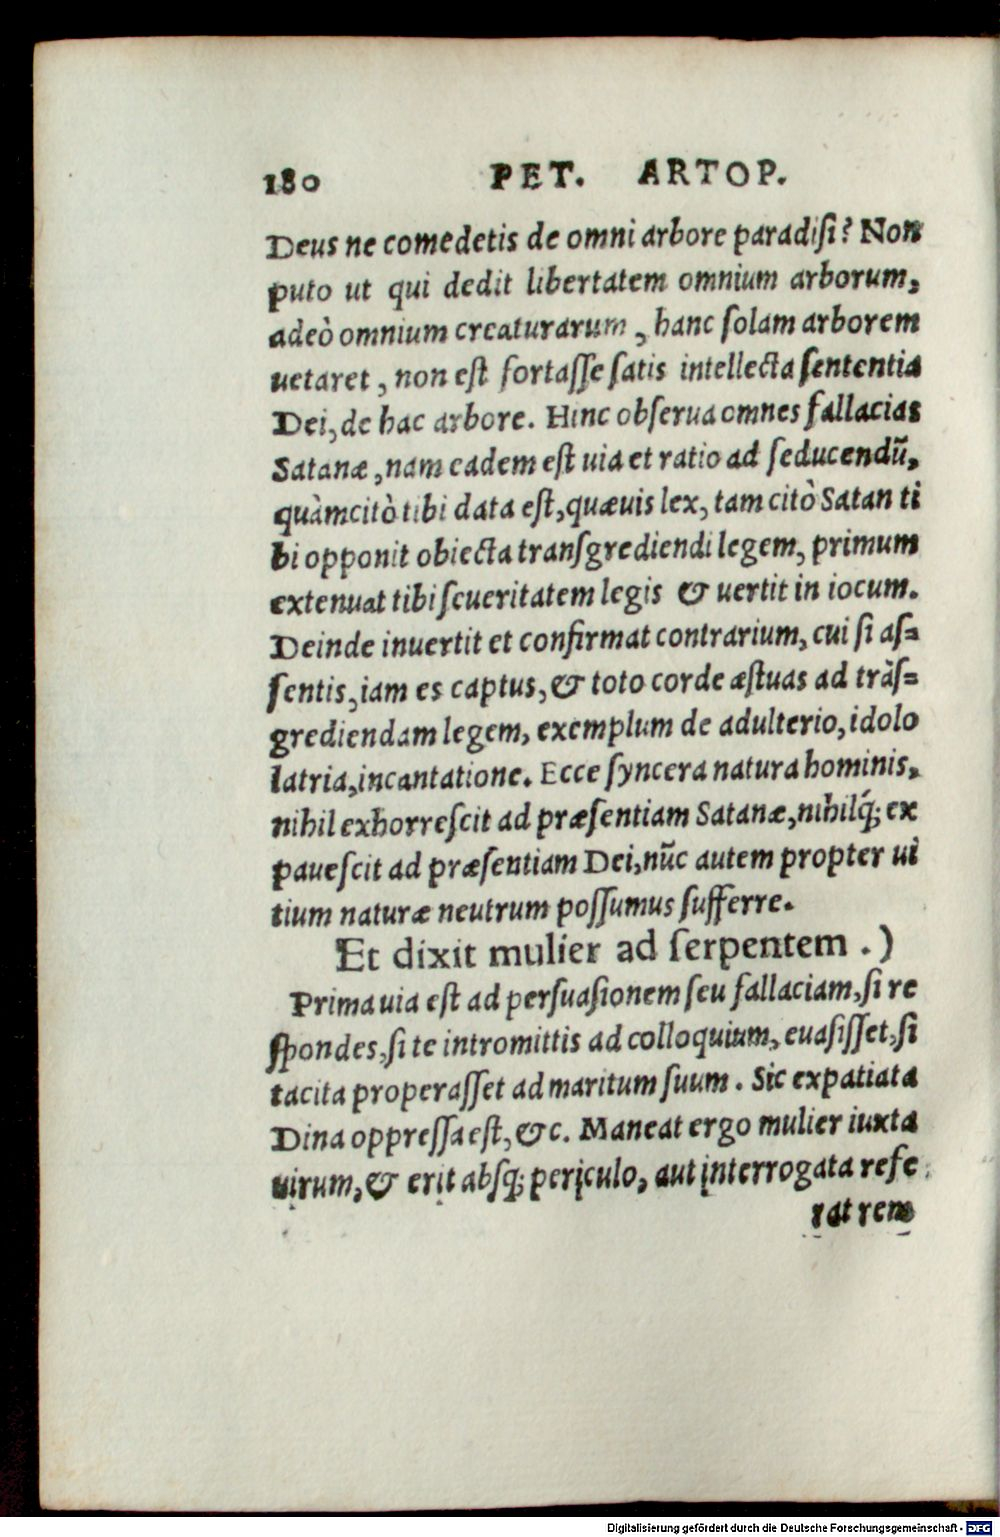 180 PET. ARTOP.
Deus ne comedetis de omni arbore paradiſi? Non
puto ut qui dedit libertatem omnium arborum,
adeò omnium creaturarum, hanc ſolam arborem
uetaret, non eſt fortaſſe ſatis intellecta ſententia
Dei, de hac arbore. Hinc obſerua omnes fallacias
Satanæ, nam eadem eſt uia et ratio ad ſeducendũ,
quàmcitò tibi data eſt, quæuis lex, tam citò Satan ti
bi opponit obiecta tranſgrediendi legem, primum
extenuat tibi ſeueritatem legis & uertit in iocum.
Deinde inuertit et confirmat contrarium, cui ſi aſ=
ſentis, iam es captus, & toto corde æſtuas ad trãſ=
grediendam legem, exemplum de adulterio, idolo
latria, incantatione. Ecce ſyncera natura hominis,
nihil exhorreſcit ad præſentiam Satanæ, nihilq́; ex
paueſcit ad præſentiam Dei, nũc autem propter ui
tium naturæ neutrum poſſumus ſufferre.
Et dixit mulier ad ſerpentem .)
Prima uia eſt ad perſuaſionem ſeu fallaciam, ſi re
ſpondes, ſi te intromittis ad colloquium, euaſiſſet, ſi
tacita properaſſet ad maritum ſuum. Sic expatiata
Dina oppreſſa eſt, &c. Maneat ergo mulier iuxta
uirum, & erit abſq; periculo, aut interrogata refe
rat rem
Digitalisierung gefördert durch die Deutsche Forschungsgemeinschaft - DFG